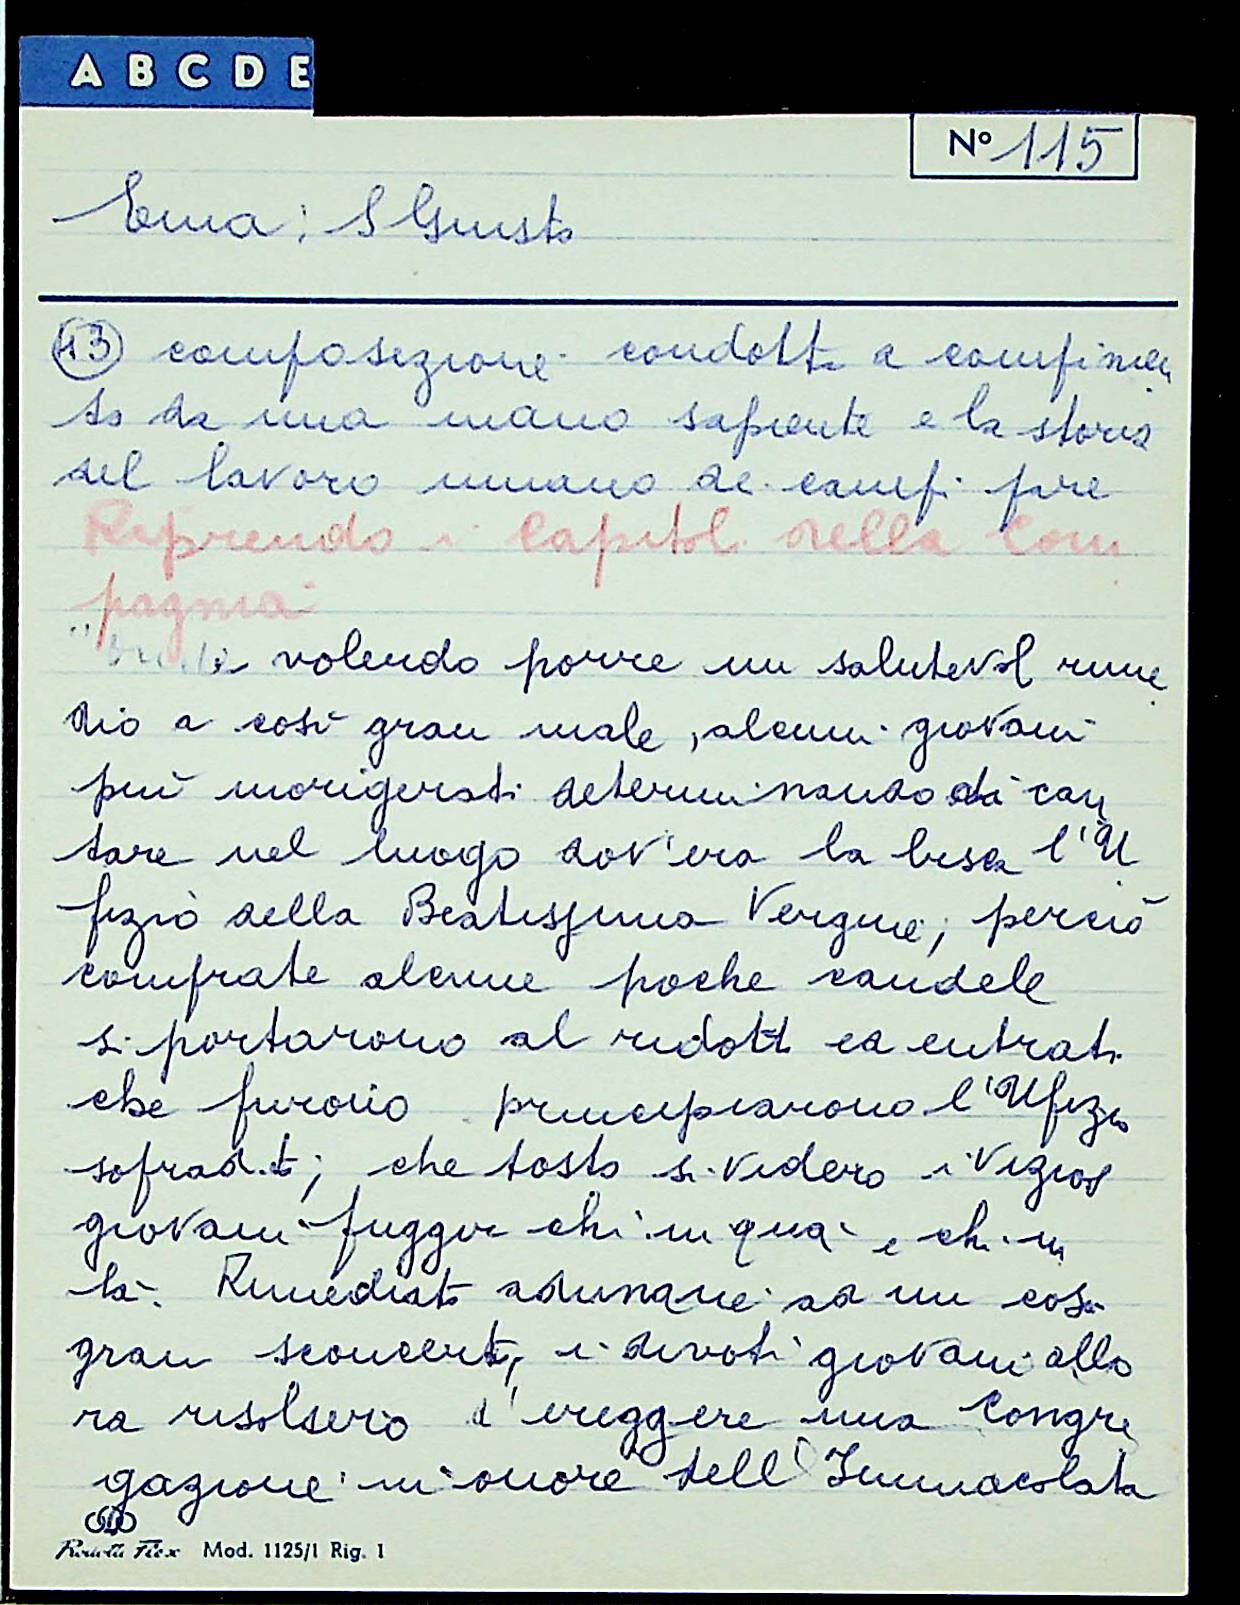 A B C D E
Nº 115
Ema: S Giusto
43 composizione condotta a compimen
to da una mano sapiente e la storia
del lavoro umano dei campi fare
Riprendo i Capitoli della Com
pagnia
" volendo porre un salutevol rime
dio a così gran male, alcuni giovani
più morigerati determinando di can
tare nel luogo dov'era la bisca l'U
fizio della Beatissima Vergine; perciò
comprate alcune poche candele
si portarono al ridotto ed entrati
che furono principiarono l'Ufizio
sopradito; che tosto si videro i viziosi
giovani fuggir chi in quà e chi in
là. Rimediato adunque ad un così
gran sconcerto, i divoti giovani allo
ra risolsero d'ereggere una Congre
gazione in onore dell'Immacolata
Flex Mod. 1125/1 Rig. 1